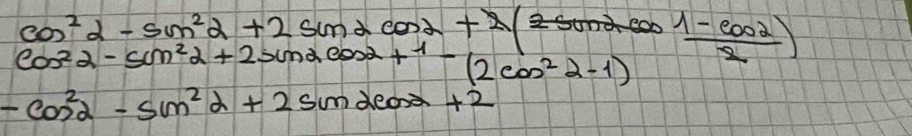 cos²α - sin²α + 2 sinα cosα + 2( 1 - cosα / 2 )
cos²α - sin²α + 2 sinα cosα + 1 - (2cos²α - 1)
- cos²α - sin²α + 2 sinα cosα + 2